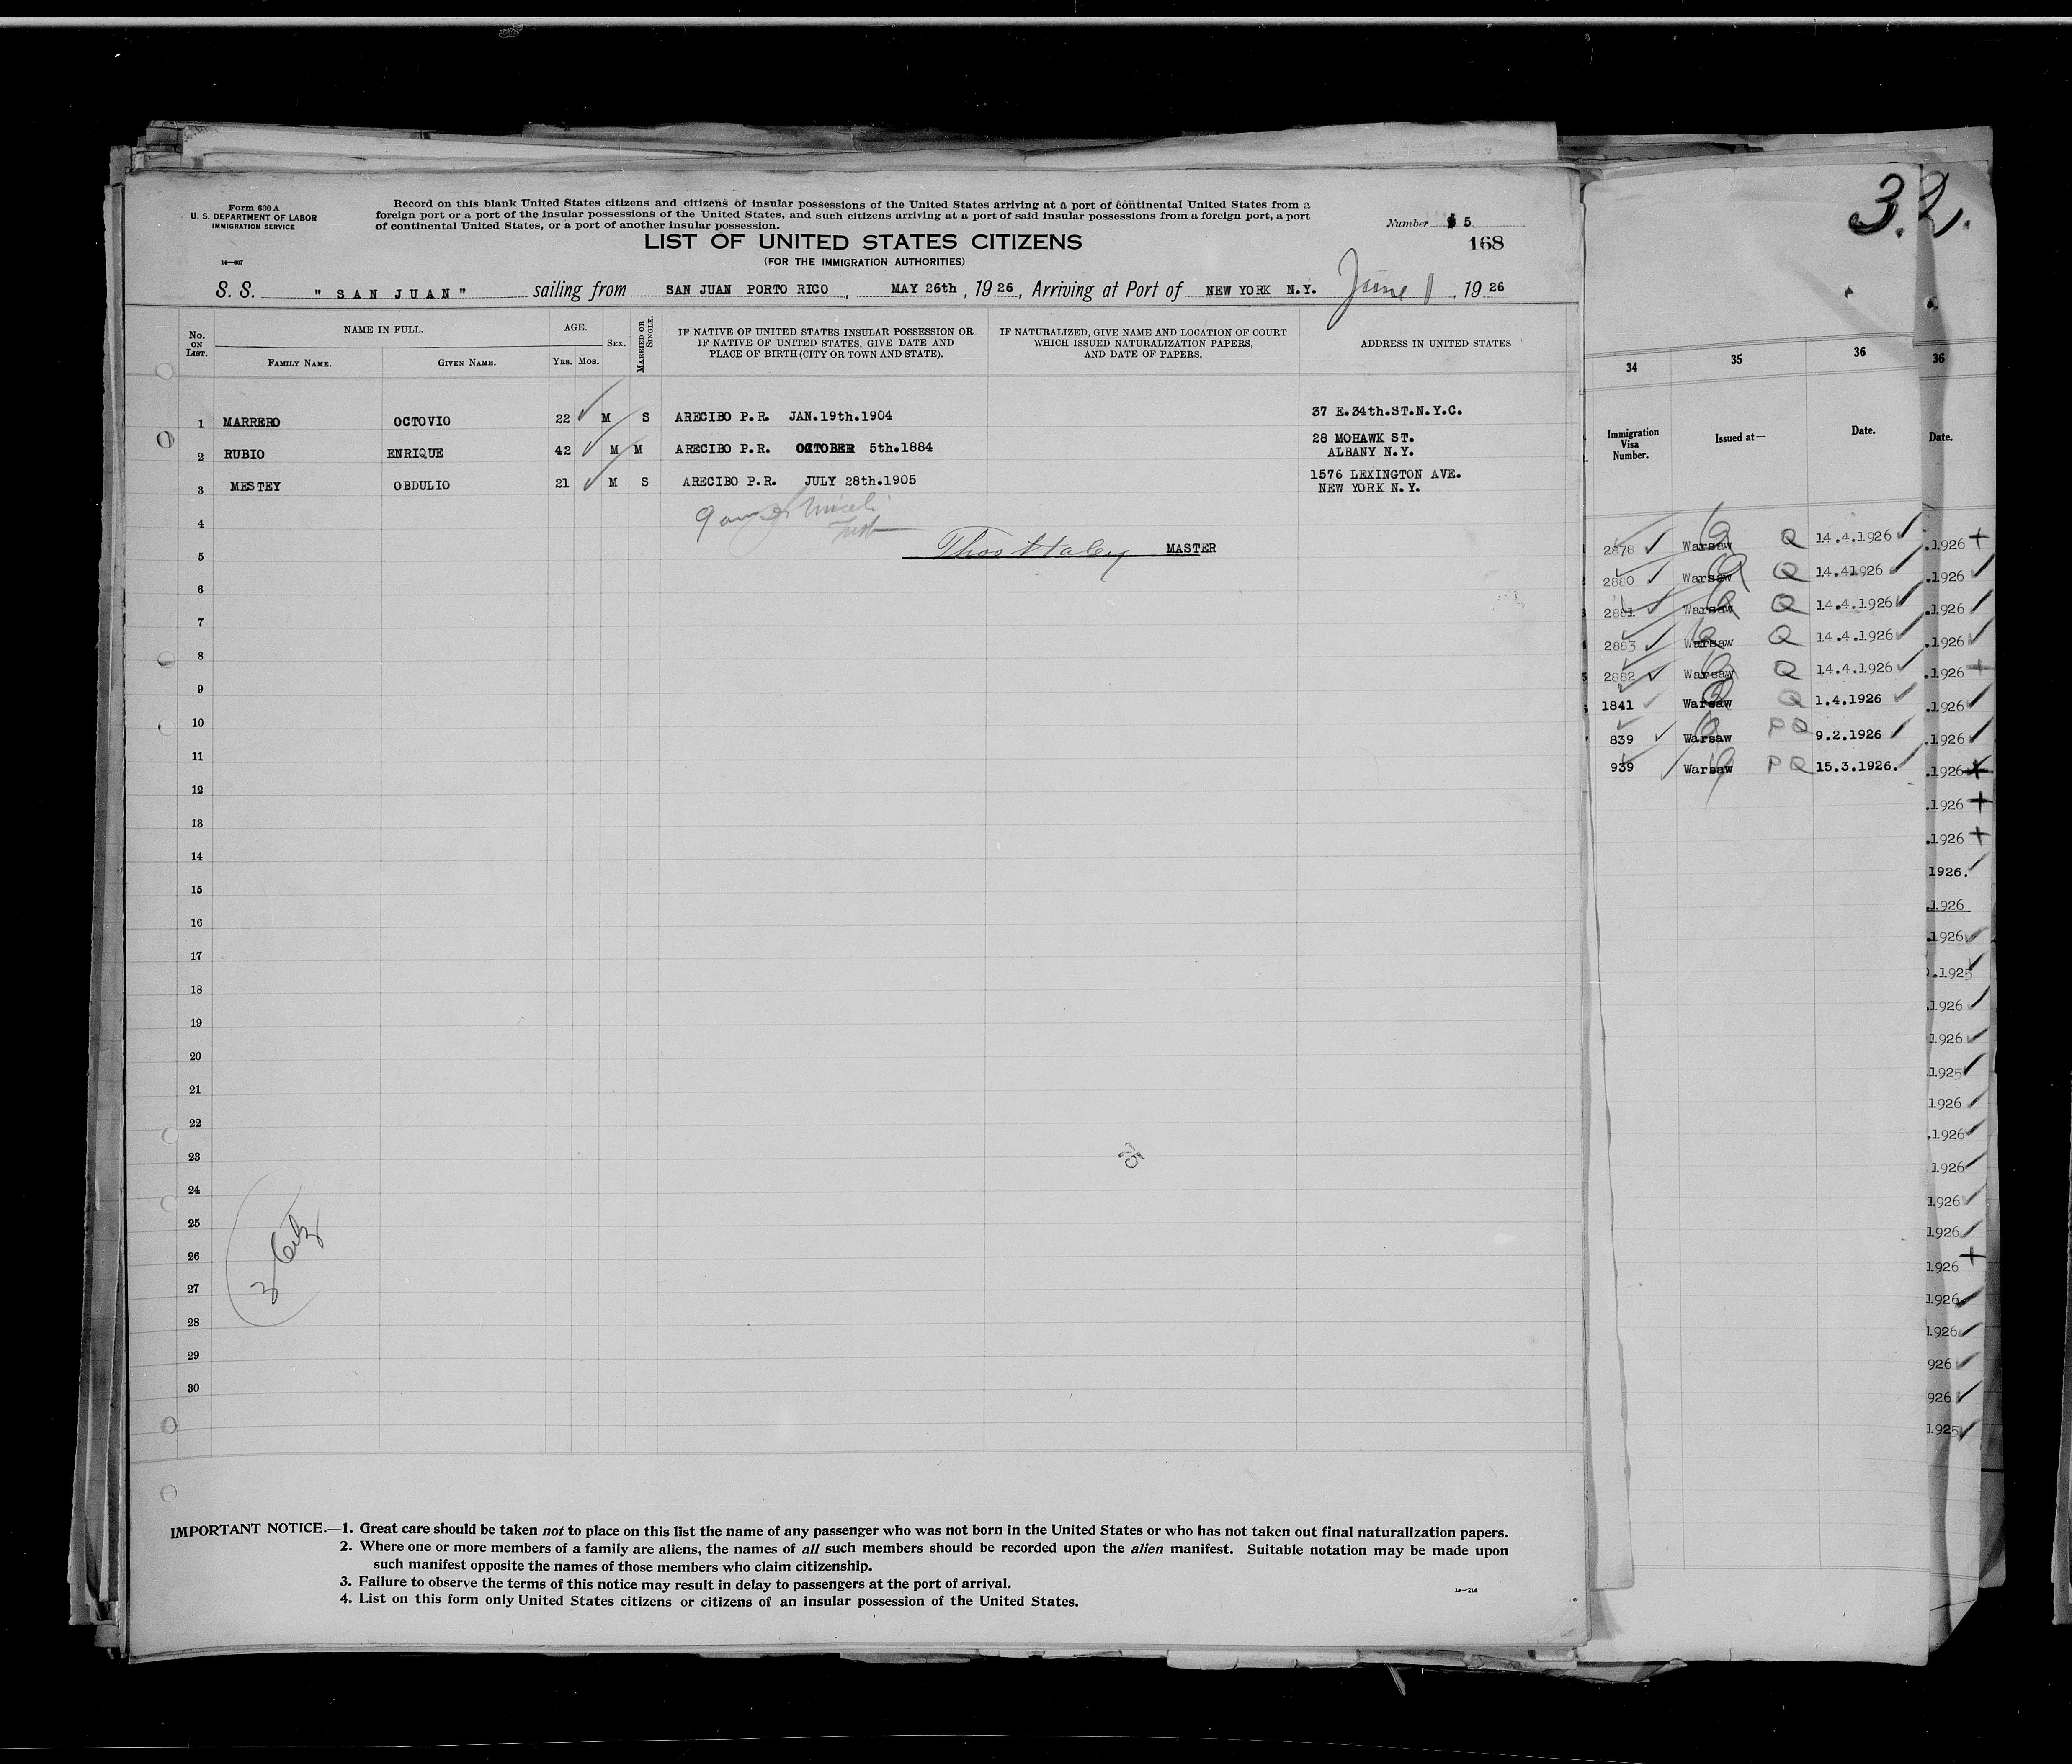 Form 630 A
U. S. DEPARTMENT OF LABOR
IMMIGRATION SERVICE
14—807
Record on this blank United States citizens and citizens of insular possessions of the United States arriving at a port of continental United States from a
foreign port or a port of the insular possessions of the United States, and such citizens arriving at a port of said insular possessions from a foreign port, a port
of continental United States, or a port of another insular possession.
Number 5
168
LIST OF UNITED STATES CITIZENS
(FOR THE IMMIGRATION AUTHORITIES)
S. S. " SAN JUAN " sailing from SAN JUAN PORTO RICO , MAY 26th , 1926 , Arriving at Port of NEW YORK N.Y. June 1 , 1926
No. ON LIST. NAME IN FULL. AGE. SEX. MARRIED OR SINGLE. IF NATIVE OF UNITED STATES INSULAR POSSESSION OR IF NATIVE OF UNITED STATES, GIVE DATE AND PLACE OF BIRTH (CITY OR TOWN AND STATE). IF NATURALIZED, GIVE NAME AND LOCATION OF COURT WHICH ISSUED NATURALIZATION PAPERS, AND DATE OF PAPERS. ADDRESS IN UNITED STATES
FAMILY NAME. GIVEN NAME. YRS. MOS.
1 MARRERO OCTOVIO 22 M S ARECIBO P.R. JAN.19th.1904 37 E.34th.ST.N.Y.C.
2 RUBIO ENRIQUE 42 M M ARECIBO P.R. OCTOBER 5th.1884 28 MOHAWK ST. ALBANY N.Y.
3 MESTEY OBDULIO 21 M S ARECIBO P.R. JULY 28th.1905 1576 LEXINGTON AVE. NEW YORK N.Y.
4
5 Thos Staley MASTER
6
7
8
9
10
11
12
13
14
15
16
17
18
19
20
21
22
23
24
25
26
27
28
29
30
3 Citz
IMPORTANT NOTICE.—1. Great care should be taken not to place on this list the name of any passenger who was not born in the United States or who has not taken out final naturalization papers.
2. Where one or more members of a family are aliens, the names of all such members should be recorded upon the alien manifest. Suitable notation may be made upon
such manifest opposite the names of those members who claim citizenship.
3. Failure to observe the terms of this notice may result in delay to passengers at the port of arrival.
4. List on this form only United States citizens or citizens of an insular possession of the United States.
14—214
32.
34 35 36
Immigration Visa Number. Issued at— Date.
2878 Warsaw Q 14.4.1926
2880 Warsaw Q 14.41926
2881 Warsaw Q 14.4.1926
2883 Warsaw Q 14.4.1926
2882 Warsaw Q 14.4.1926
1841 Warsaw Q 1.4.1926
839 Warsaw PQ 9.2.1926
939 Warsaw PQ 15.3.1926.
36
Date.
.1926
.1926
.1926
.1926
.1926
.1926
.1926
.1926
.1926
.1926
1926.
.1926
.1926
.1925
.1926
1926
1925
1926
.1926
1926
1926
1926
1926
1926
1926
926
926
1925